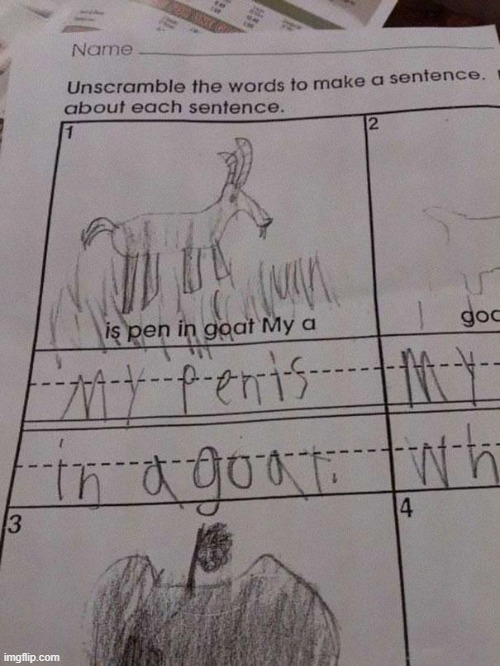 Name
Unscramble the words to make a sentence.
about each sentence.
1
2
is pen in goat My a
My penis
My
in a goat.
Wh
3
4
imgflip.com